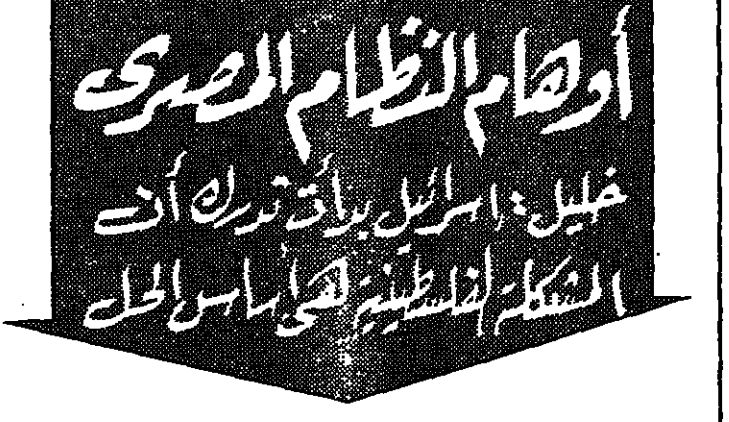 أوهام النظام المصري
خليل: إسرائيل بدأت تدرك أن
المشكلة الفلسطينية هي أساس الحل